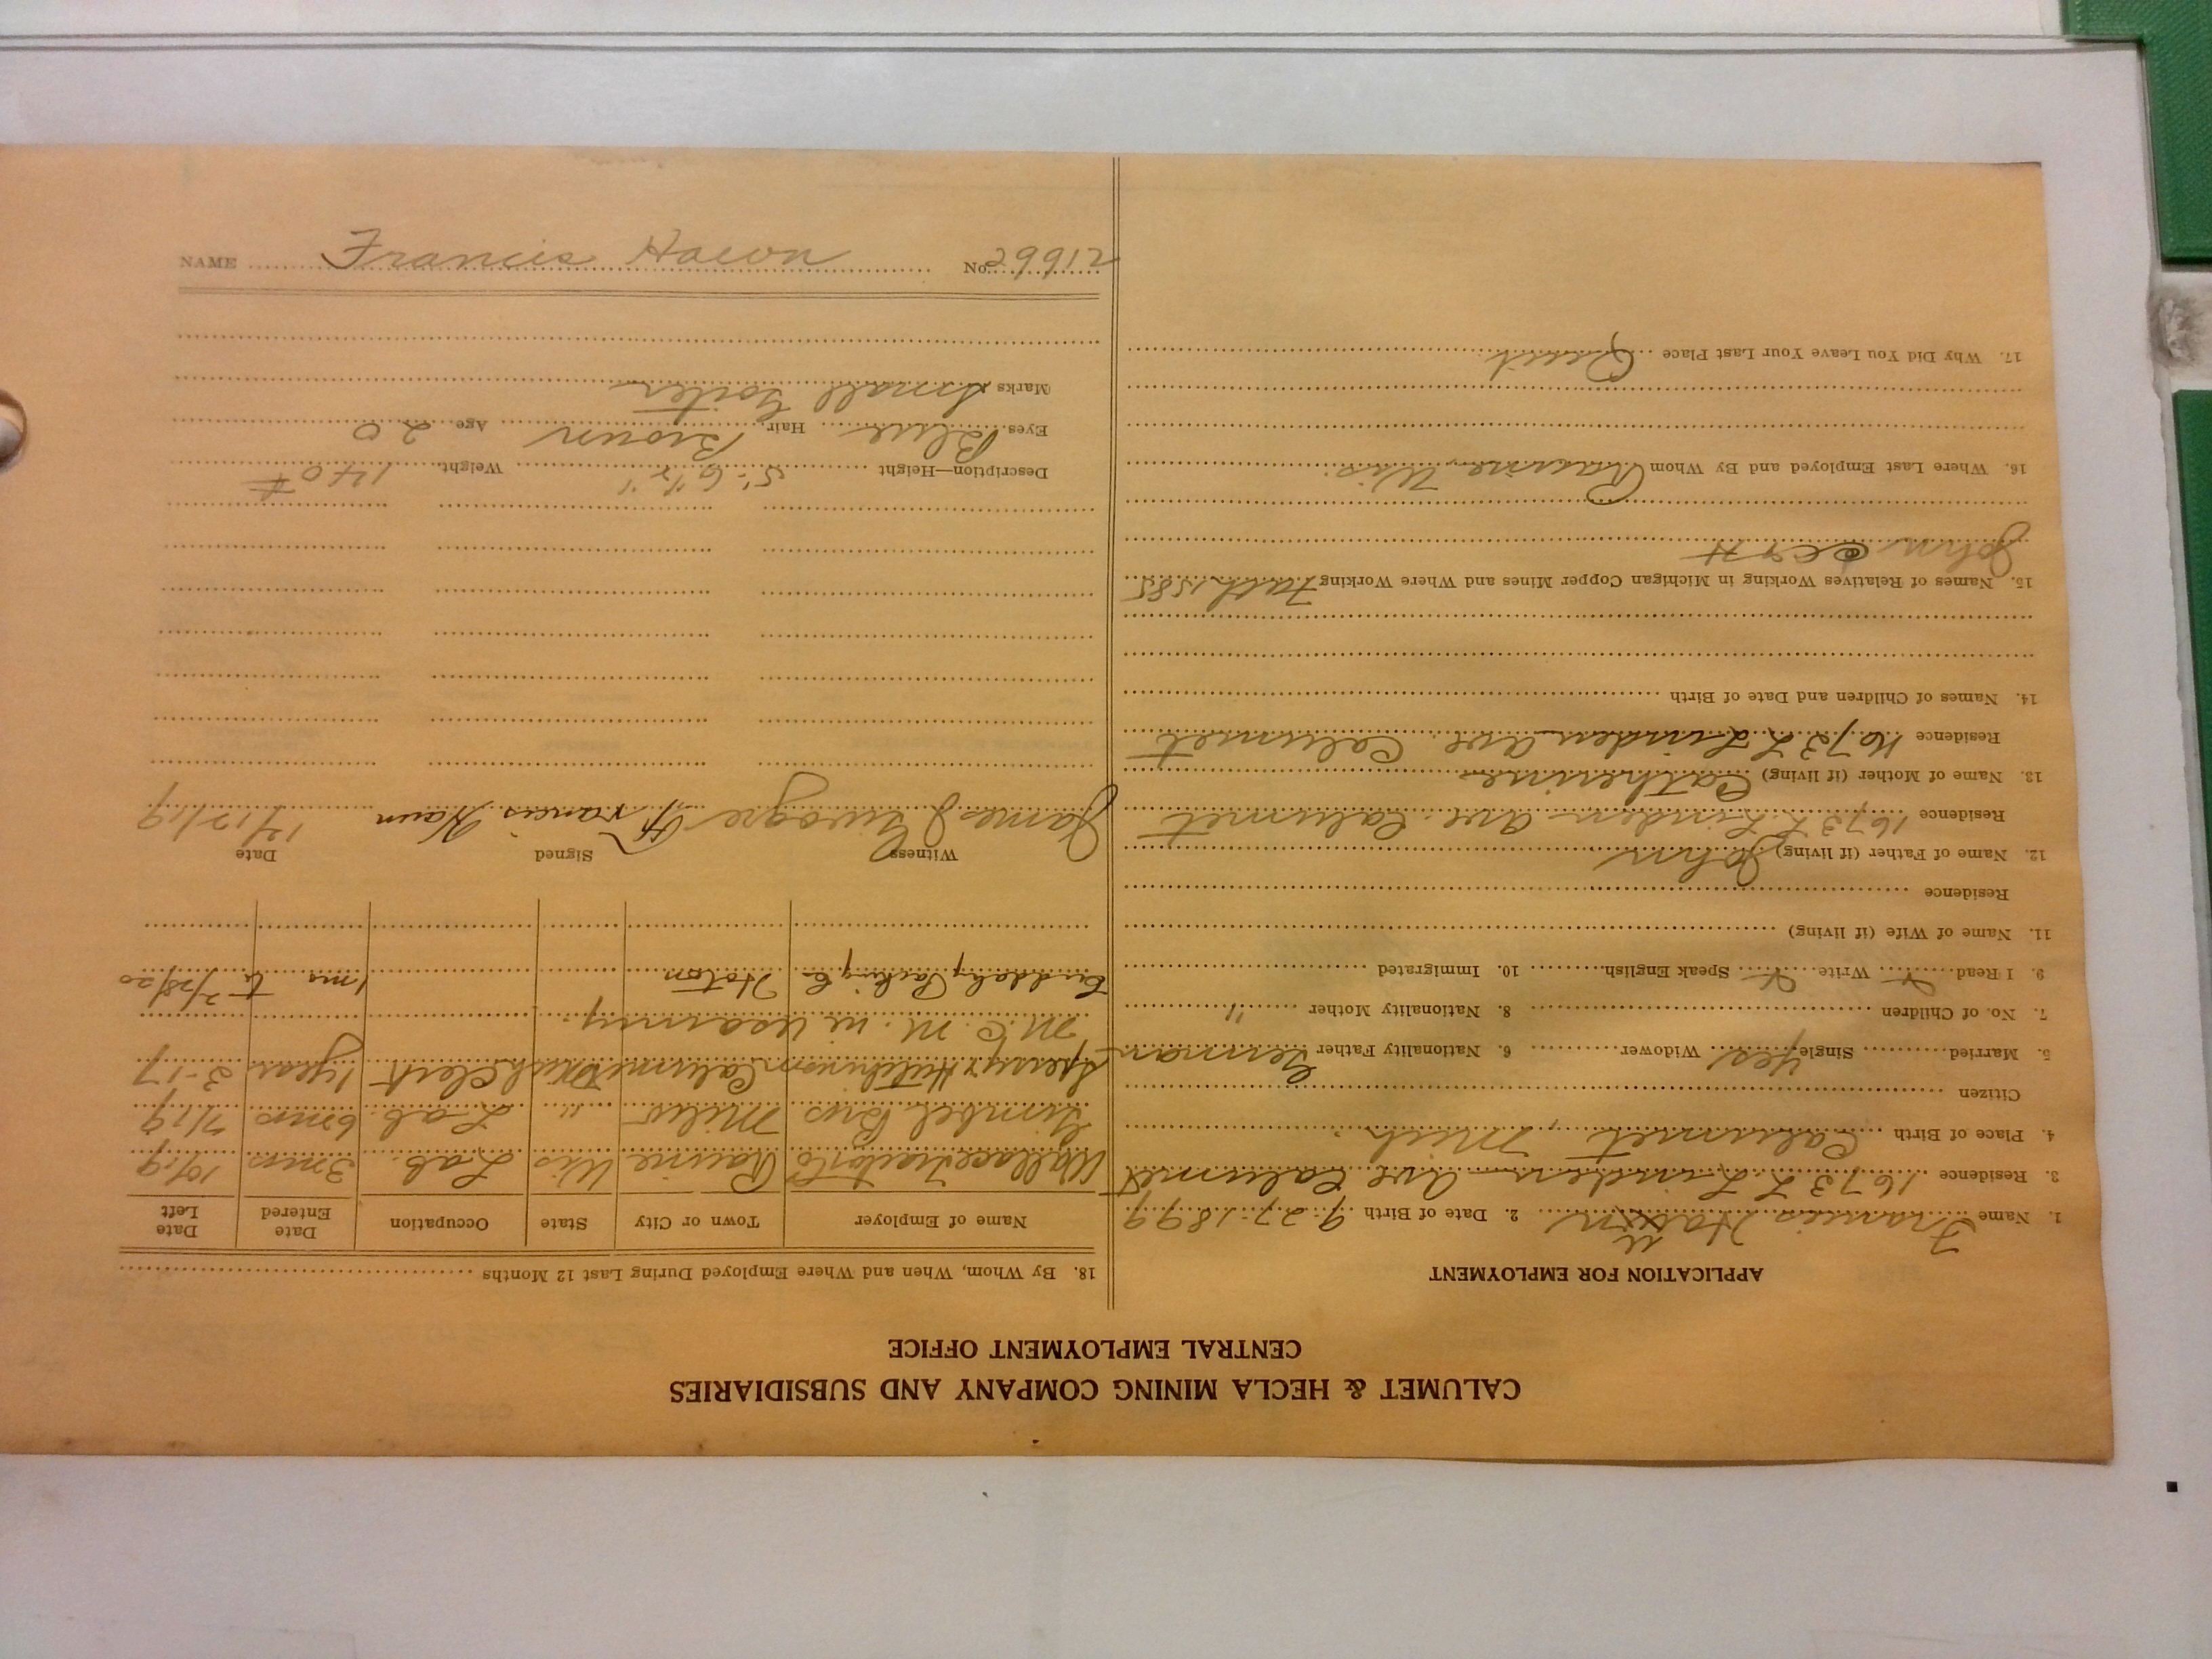 CALUMET & HECLA MINING COMPANY AND SUBSIDIARIES
CENTRAL EMPLOYMENT OFFICE
APPLICATION FOR EMPLOYMENT
1. Name Francis Haun 2. Date of Birth 9-27-1899
3. Residence 1673 L. Linden Ave Calumet
4. Place of Birth Calumet, Mich.
Citizen
5. Married Single yes Widower 6. Nationality Father German
7. No. of Children 8. Nationality Mother "
9. I Read Write Speak English 10. Immigrated
11. Name of Wife (if living)
Residence
12. Name of Father (if living) John
Residence 1673 L. Linden Ave. Calumet
13. Name of Mother (if living) Catherine
Residence 1673 L Linden Ave. Calumet
14. Names of Children and Date of Birth
15. Names of Relatives Working in Michigan Copper Mines and Where Working Fath 1585
John C & H
16. Where Last Employed and By Whom Racine, Wis.
17. Why Did You Leave Your Last Place Quit
18. By Whom, When and Where Employed During Last 12 Months
Name of Employer Town or City State Occupation Date Entered Date Left
Wallace Tractor Co Racine Wis Lab. 3 mos 10/19
Gimbel Bros Milw " Lab. 6 mos 7/19
Sperry & Hutchinson Calumet Mich Clerk 1 year 3-17
M. C. M. in
Cudahy Packing Co Hoton 1 mo to 2/28/20
Witness Signed Date
James J Francis Haun 12/17/19
Description—Height 5'-6½" Weight 140#
Eyes Blue Hair Brown Age 20
Marks Small Goiter
NAME Francis Haun No. 29912